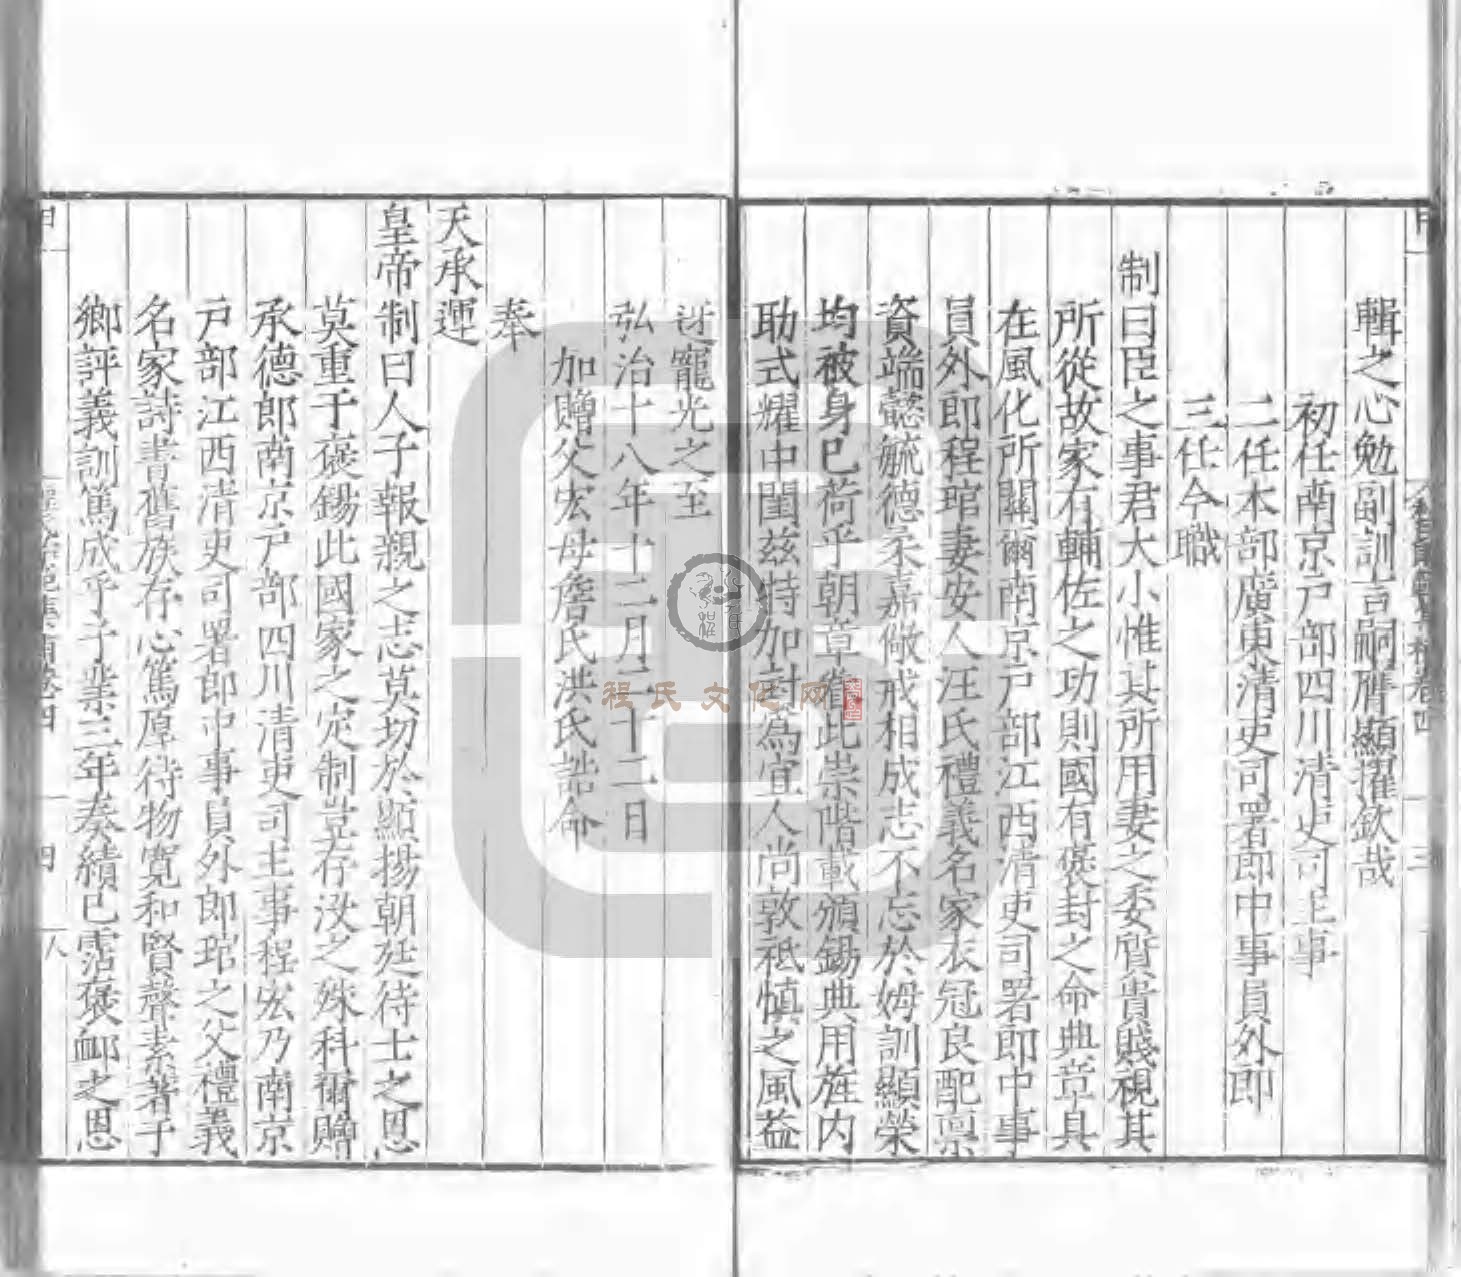 輯之心勉副訓言嗣膺顯擢欽哉
初任南京戶部四川清吏司主事
二任本部廣東清吏司署郎中事員外郎
三任今職
制曰臣之事君大小惟其所用妻之委質貴賤視其
所從故家有輔佐之功則國有褒封之命典章具
在風化所關爾南京戶部江西清吏司署郎中事
員外郎程琯妻安人汪氏禮義名家衣冠良配禀
資端懿毓德柔嘉儆戒相成志不忘於姆訓顯榮
均被身已荷乎朝章眷此崇階載頒錫典用旌内
助式耀中閨茲特加封為宜人尚敦祗慎之風益
迓寵光之至
弘治十八年十二月二十二日
加贈父宏母詹氏洪氏誥命
奉
天承運
皇帝制曰人子報親之志莫切於顯揚朝廷待士之恩
莫重于褒錫此國家之定制豈存沒之殊科爾贈
承德郎南京戶部四川清吏司主事程宏乃南京
戶部江西清吏司署郎中事員外郎琯之父禮義
名家詩書舊族存心篤厚待物寬和賢聲素著于
鄉評義訓篤成乎子業三年奏績已霑褒䘏之恩
四
程氏文化网